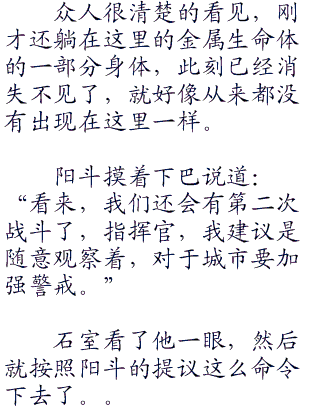 众人很清楚的看见，刚
才还躺在这里的金属生命体
的一部分身体，此刻已经消
失不见了，就好像从来都没
有出现在这里一样。
阳斗摸着下巴说道：
“看来，我们还会有第二次
战斗了，指挥官，我建议是
随意观察着，对于城市要加
强警戒。”
石室看了他一眼，然后
就按照阳斗的提议这么命令
下去了。。